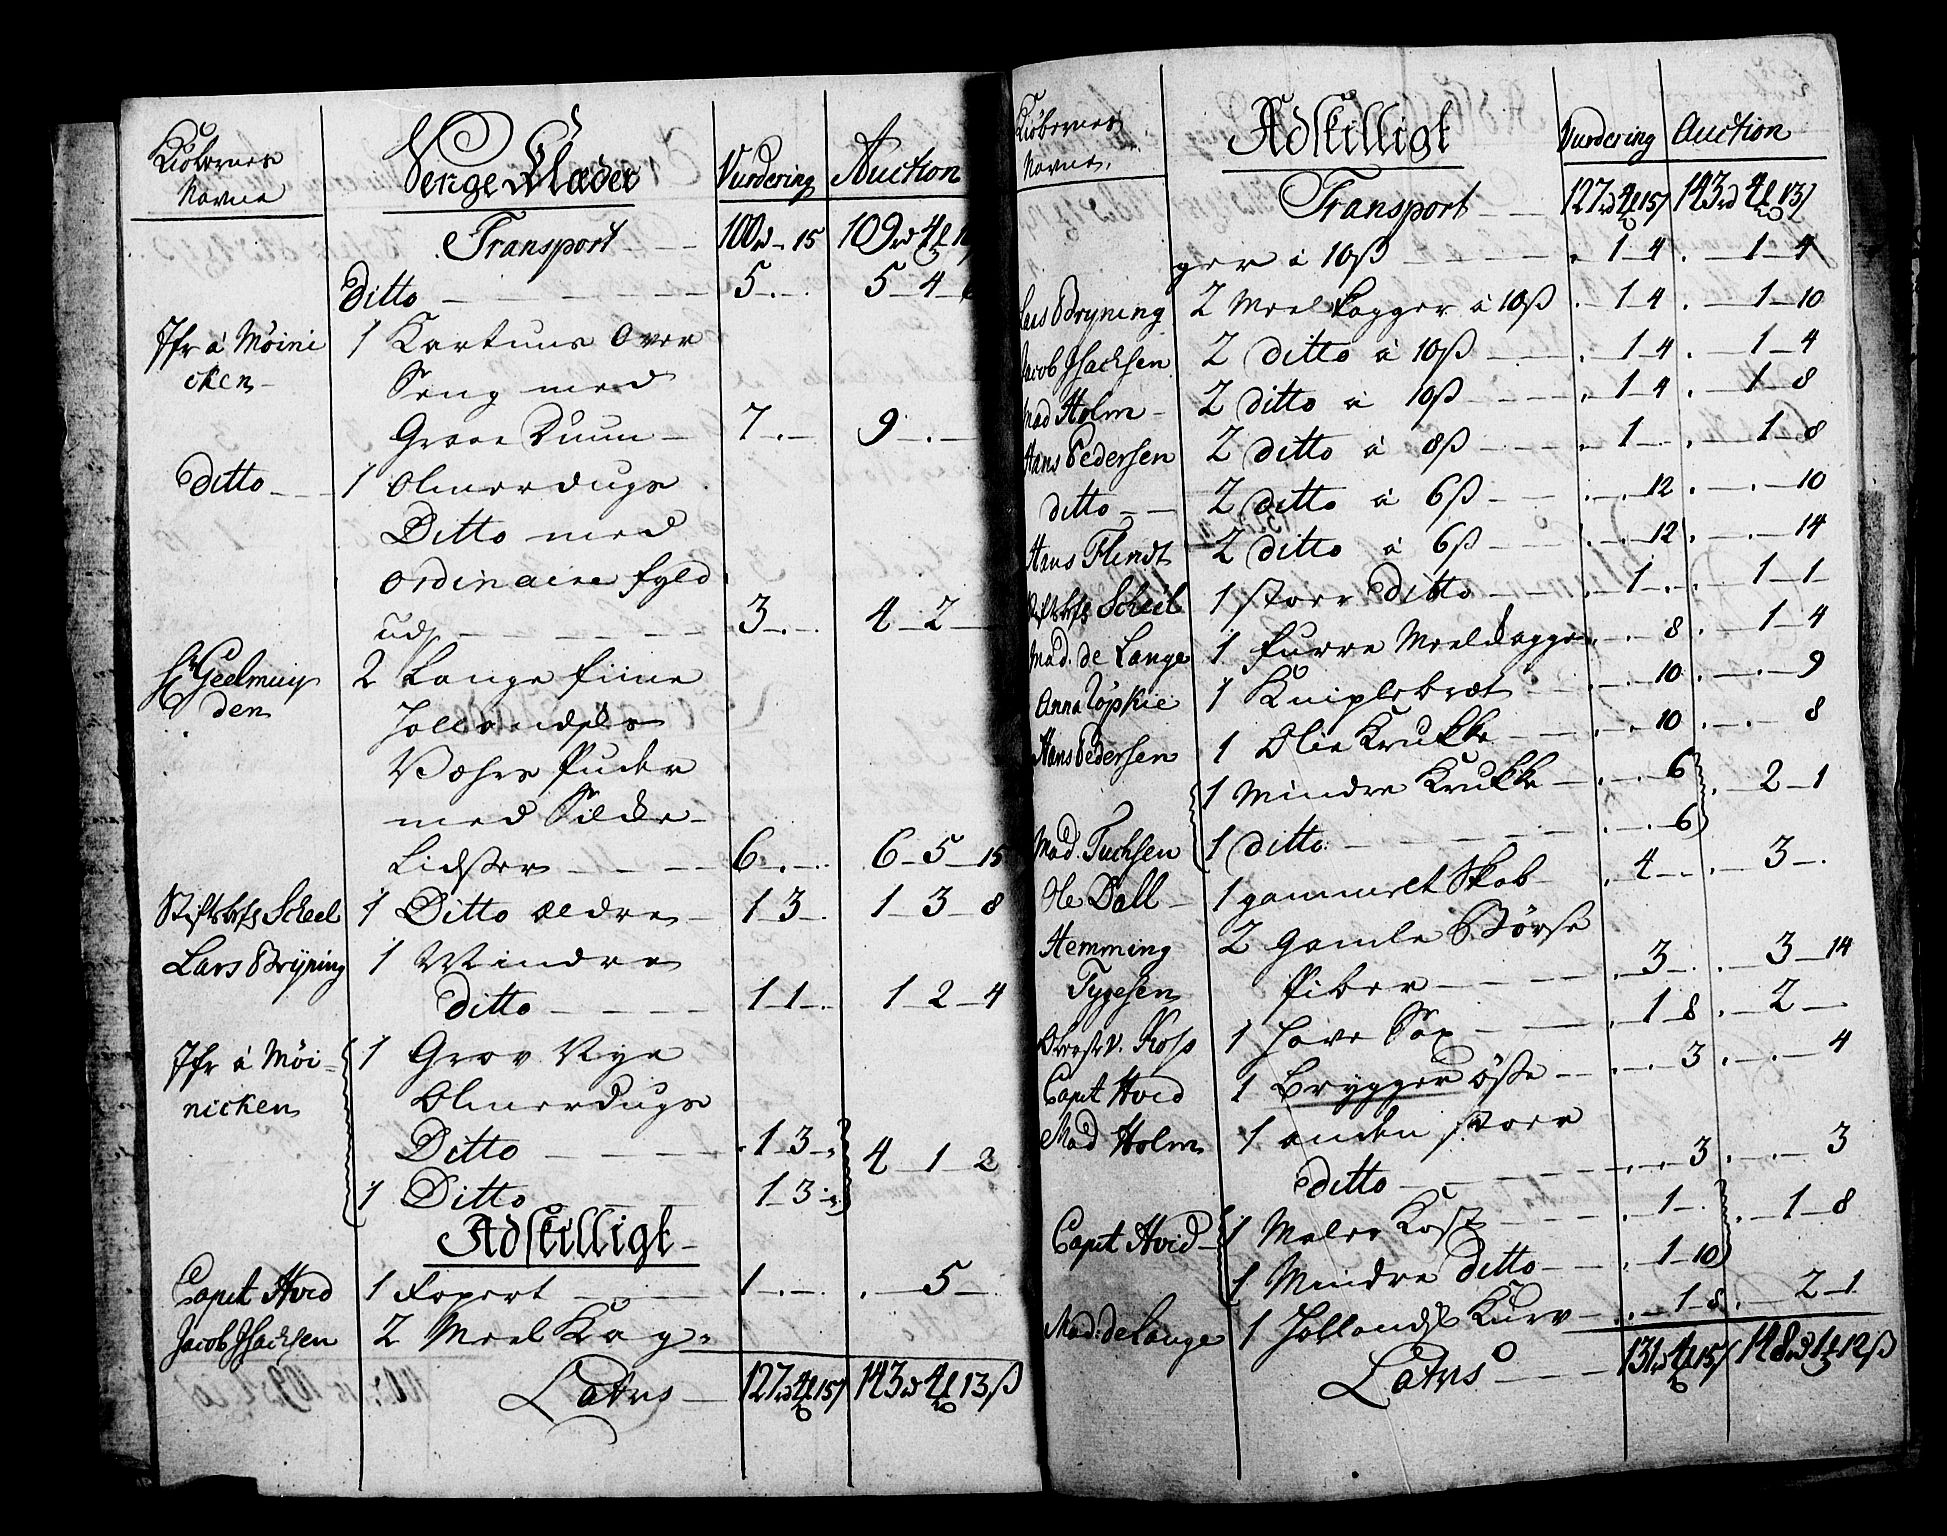 Kiöbernes Navne | Senge Klæder | Vurdering | Auction
Transport — 100 rd - 15 | 109 rd 4
Ditto — 5 - . - | 5 - 4 -
Jfr á Möini | 1 Kartuns Over
cken | Seng med
Graae Duun — 7 - . - | 9 - . -
ditto — | 1 Olmerdugs
Ditto med
ordinaire fyld
ud — 3 - . - | 4 - 2 -
Hr Geelmuy | 2 Lange fiine
den | Hollandske
Vahrs Puder
med Silke
Lidser — 6 - . - | 6 - 5 - 15
Stiftsbefs Scheel | 1 Ditto ældre — 1 3 - | 1 - 3 - 8
Lars Brÿning | 1 Mindre
ditto — 1 1 - . | 1 2 - 4
Jfr á Möi- | 1 Grov Nye
nicken | Olmerdugs
Ditto — 1 3 - | 4 - 1 - 2
1 Ditto — 1 3 -
Adskilligt
Capit Hvid | 1 Fopert — 1 - . - | . - 5 -
Jacob JSachsen | 2 Meel Kag-
Latus — 127 rd 4 15 | 143 rd 4 13 ß
Kiöbernes Navne | Adskilligt | Vurdering | Auction
Transport — 127 rd 4 15 | 143 rd 4 13
ger á 10 ß — 1 4 | 1 - 4
Lars Bryning | 2 Meel Kagger á 10 ß — 1 4 | 1 - 10
Jacob JSachsen | 2 ditto á 10 ß — 1 4 | 1 - 4
Mad Holm - | 2 ditto á 10 ß — 1 4 | 1 - 8
Hans Pedersen | 2 ditto á 8 ß — 1 - | 1 - 8
ditto — | 2 ditto á 6 ß — 12 | 10
Hans Flindt | 2 ditto á 6 ß — 12 | 14
Stiftsbefs Scheel | 1 storr ditto — 1 - . | 1 - 1
Mad. de Lange | 1 furre Meeldagger — 8 | 1 - 4
Anna Töpkie | 1 Kniplebræt — 10 | 9
Hans Pedersen | 1 Olie Krukke — 10 | 8
1 Mindre Krukke — 6 | 2 - 1
Mad. Tuchsen | 1 ditto — 6
Ole Dall - | 1 gammelt Skab — 4 - | 3 - .
Hemming | 2 gamle Börse
Tygesen | Piber — 3 - | 3 - 14
Oberste v. Koss | 1 Have Sax — 1 - 8 | 2 -
Capit Hvid | 1 Brygger öse — 3 | 4
Mad Holm | 1 anden storr
ditto — 3 | 3
Capit Hvid - | 1 Maler Kost — 1 - | 1 - 8
1 Mindre ditto — 1 - 10
Mad: de Lange | 1 Hollandsk Kurv — 1 8 | 2 - 1
Latus — 131 rd 4 15 | 148 rd 1 12 ß